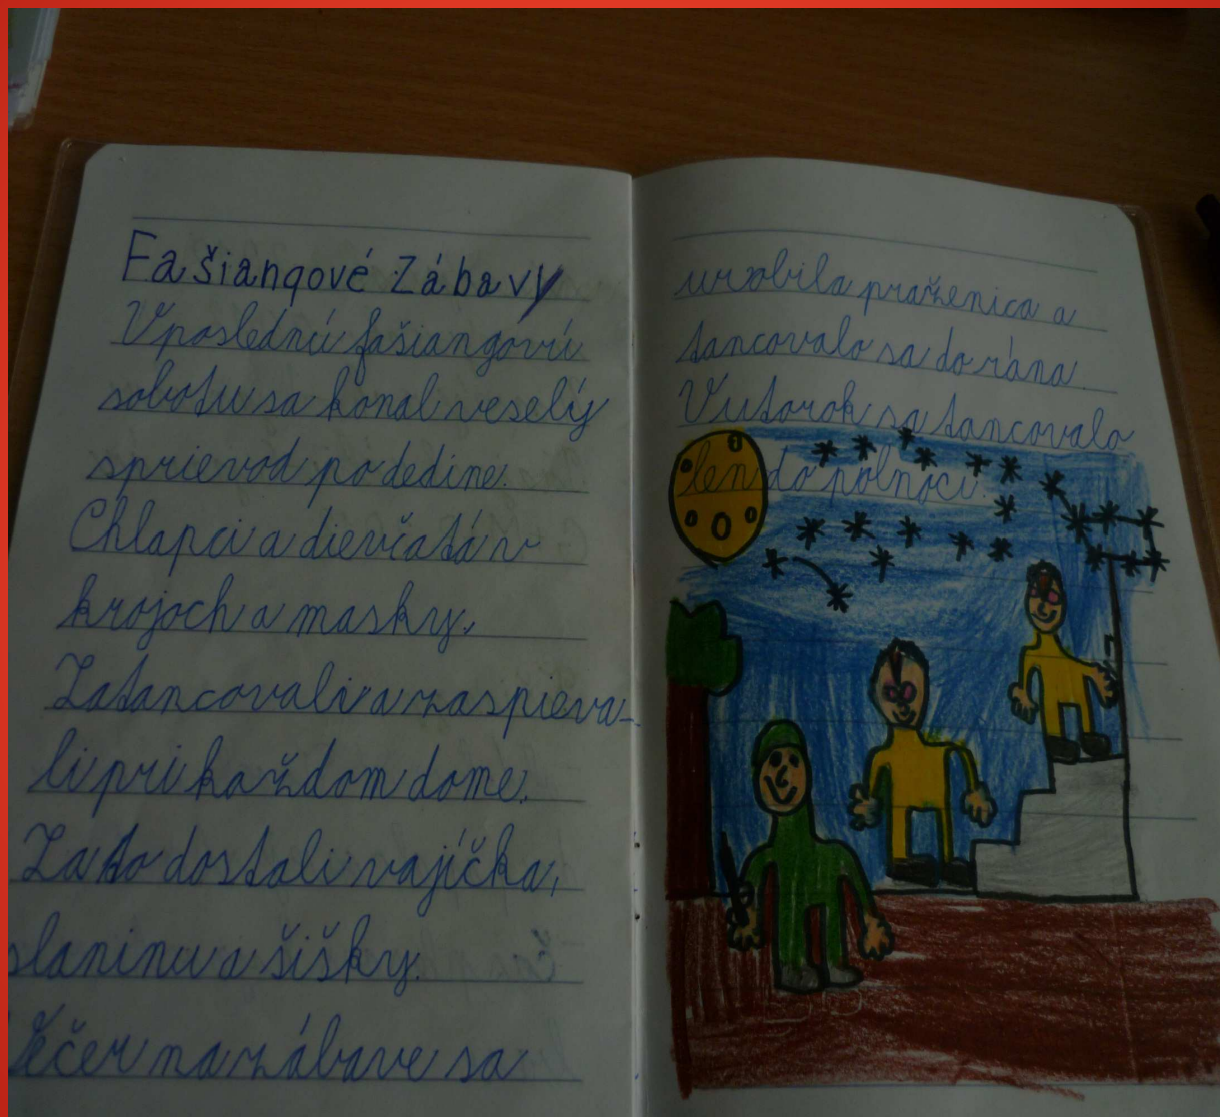 Fašiangové Zábavy
V poslednú fašiangovú
sobotu sa konal veselý
sprievod po dedine.
Chlapci a dievčatá v
krojoch a masky.
Zatancovali a zaspieva-
li pri každom dome.
Za to dostali vajíčka,
slaninu a šišky.
Večer na zábave sa
urobila praženica a
tancovalo sa do rána.
V utorok sa tancovalo
len do polnoci.